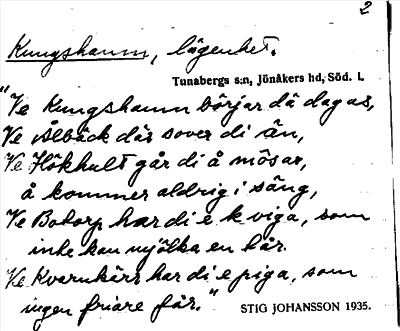 2
Kungshamn, lägenhet.
Tunabergs s:n, Jönåkers hd, Söd. l.
"Ve Kungshamn börjar dä dagas,
Ve Ålbäck där sover di än,
Ve Hökhult går di å mösar,
å kommer aldrig i säng,
Ve Botorp har di e kviga, som
inte kan mjölka en kär.
Ve Kvernkärr har di e piga, som
ingen friare får."
STIG JOHANSSON 1935.